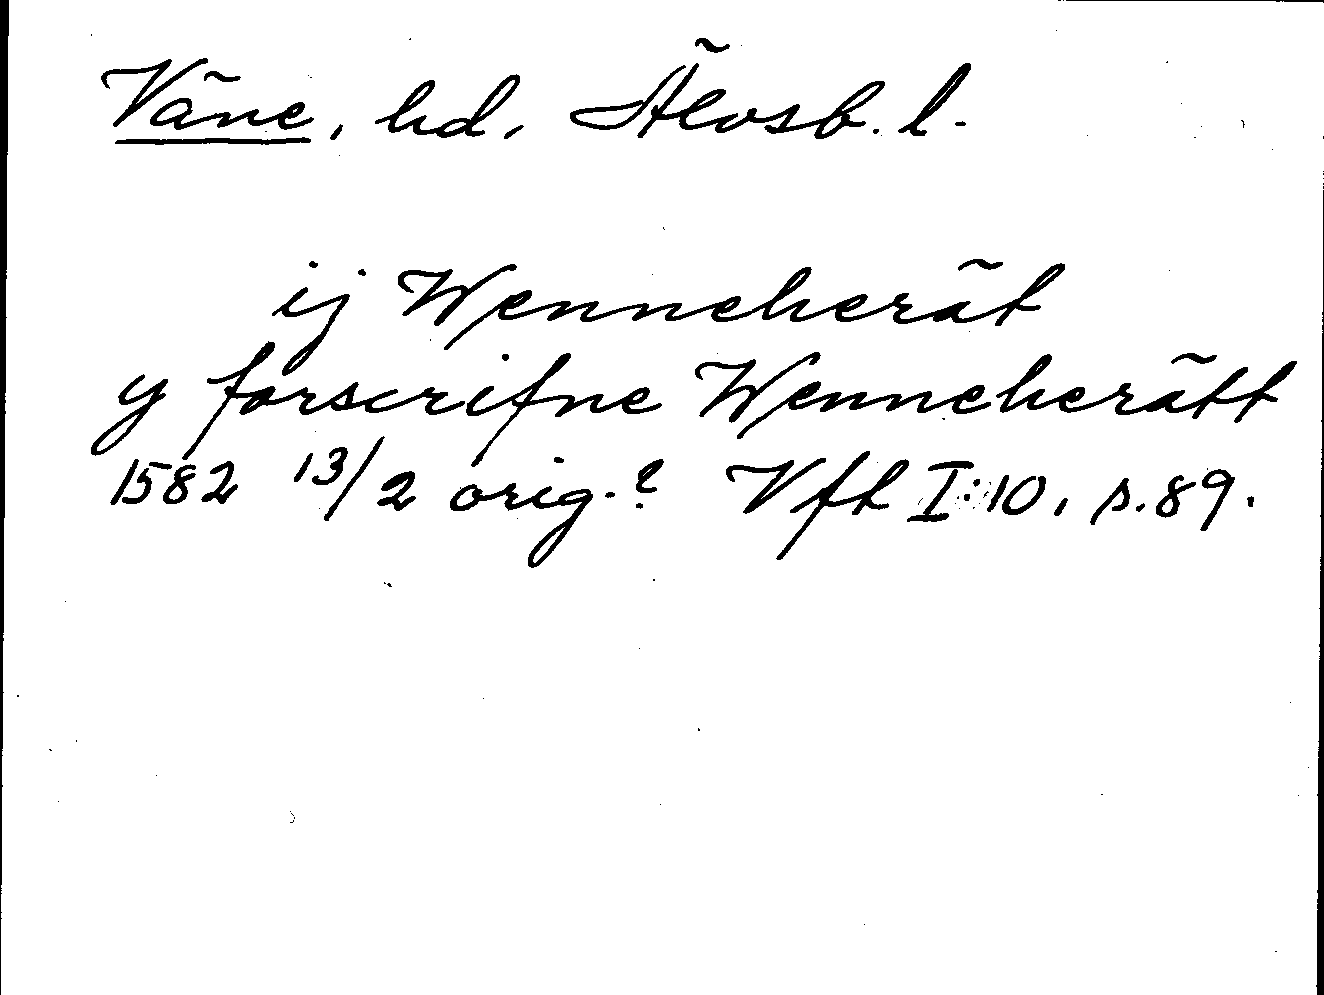 Väne, hd, Älvsb. l.
ij Wenneherät
y forscrifne Wenneherätt
1582 13/2 orig.? Vfh I:10, s.89.